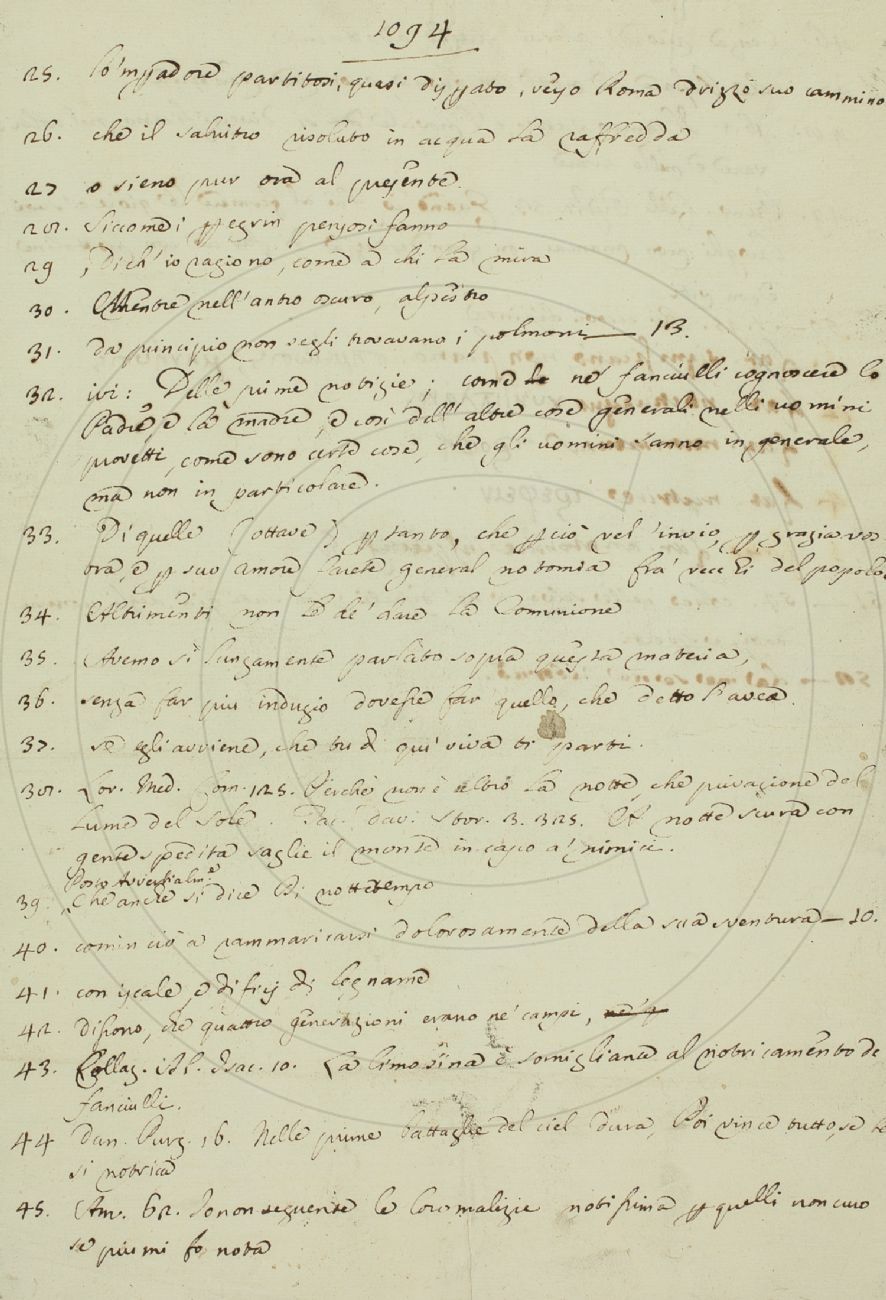 1094
25. Lo 'mpadore partitosi, quasi disppato, verso Roma drizzò suo cammino
26. che il salnitro risoluto in acqua la raffredda
27 o sieno pur ora al presente.
28. Siccome i pegrin pensosi fanno
29 Di ch' io ragiono, come a chi la mira
30. Mentre nell'antro oscuro, alpestro
31. da principio non segli trovavano i polmoni — 13.
32. ivi: Delle prime notizie; come ne' fanciulli cognoscere lo
Padre, e la madre, e così dell' altre cose generali nelli uomini
provetti, come sono certe cose, che gli uomini sanno in generale,
ma non in particolare.
33. Di quelle (ottave) p tanto, che p ciò vel' invio, p grazia vos
ora, e p suo amore farete general notomia fra' vecchi del popolo.
34. Altrimenti non le de' dare la Comunione
35. Avemo sì lungamente parlato sopra questa materia,
36. senza far più indugio dovesse far quello, che detto l'avea.
37. se egli avviene, che tu di qui viva ti parti.
38. Lor. Med. Com. 125. Perchè non è altro la notte, che privazione del
lume del Sole. Tac. Dav. Stor. 3. 325. A notte scura con
gente spedita saglie il monte in capo a' nimici.
Posto Avverbialm.e
39. Che anche si dice Di nottetempo
40. cominciò a rammaricarsi dolorosamente della sua sventura — 10.
41. con iscale, e dificj di legname
42. dissono, che quattro generazioni erano ne' campi,
43. Collaz. Ab. Isac. 10. La limosina è somigliante al notricamento de
fanciulli.
44 Dan. Purg. 16. Nelle prime battaglie del ciel dura, Poi vince tutto, se be
si notrica
45. Am. 62. Io non seguente le loro malizie notissima p quelli non curo
se più mi fo nota